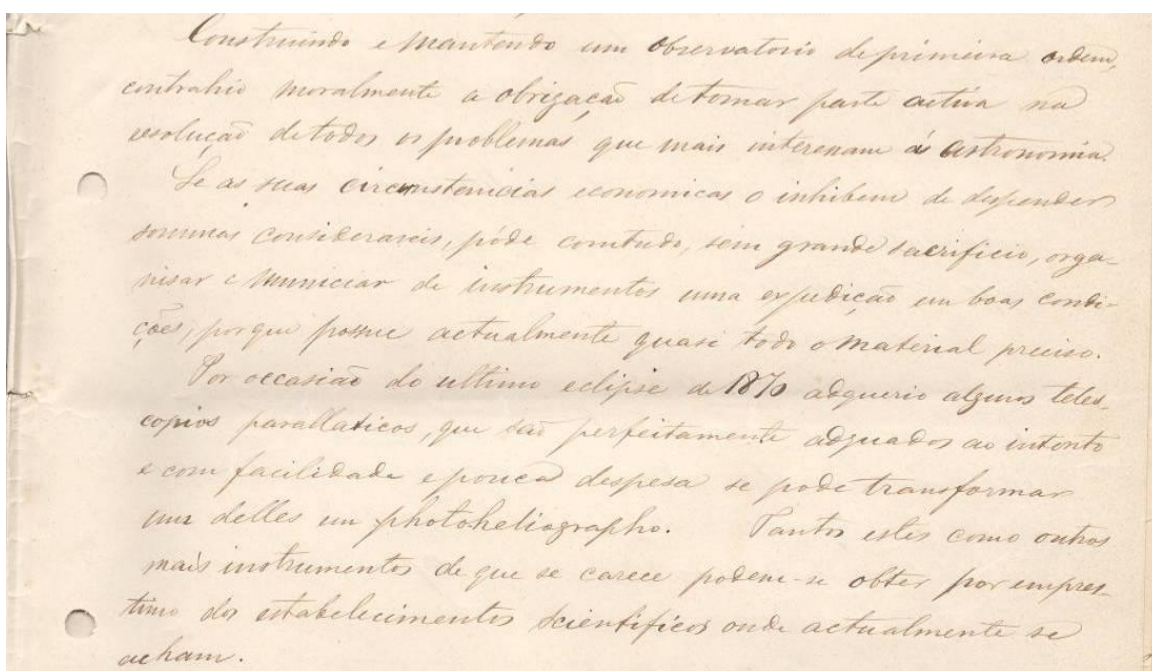 Construindo e mantendo um observatorio de primeira ordem,
contrahio moralmente a obrigação de tomar parte activa na
resolução de todos os problemas que mais interessam ás astronomia.
Se as suas circumstencicias economicas o inhibem de despender
sommas consideraveis, póde comtudo, sem grande sacrificio, orga-
nisar e municiar de instrumentos uma expedição em boas condi-
ções, porque possue actualmente quasi todo o material preciso.
Por occasião do ultimo eclipse de 1870 adquerio alguns teles-
copios parallaticos, que são perfeitamente adquados ao intento
e com facilidade e pouca despesa se pode transformar
um delles em photoheliographo. Tantos estes como outros
mais instrumentos de que se carece podem-se obter por empres-
timo dos estabelecimentos scientificos onde actualmente se
acham.